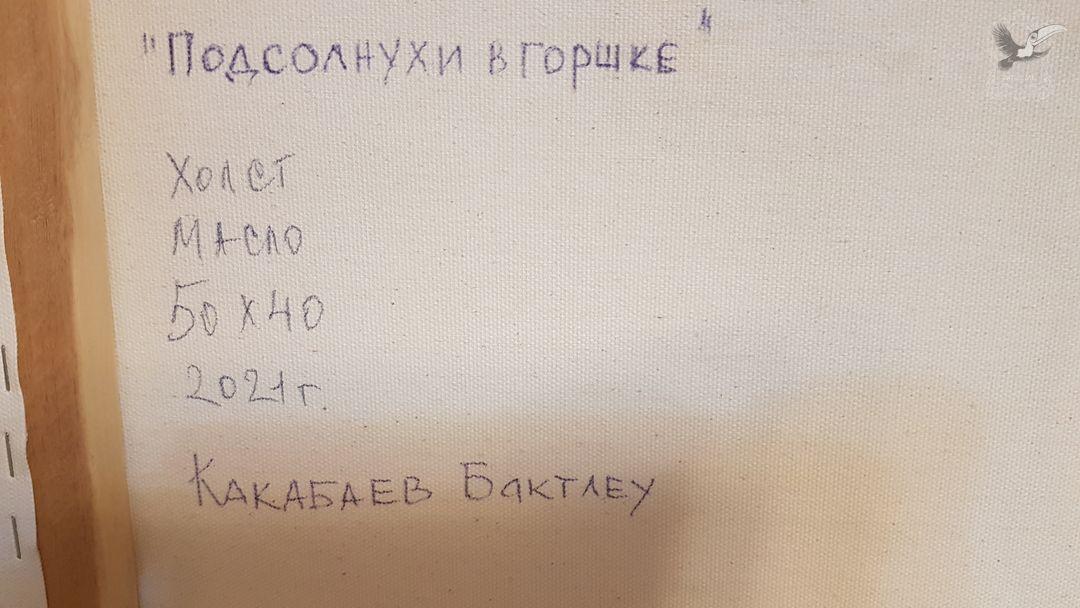 "Подсолнухи в горшке"
Холст
Масло
50х40
2021г.
Какабаев Бактлеу